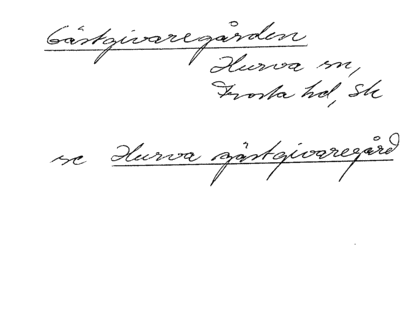 Gästgivaregården
Hurva sn,
Frosta hd, Sk
se Hurva gästgivaregård